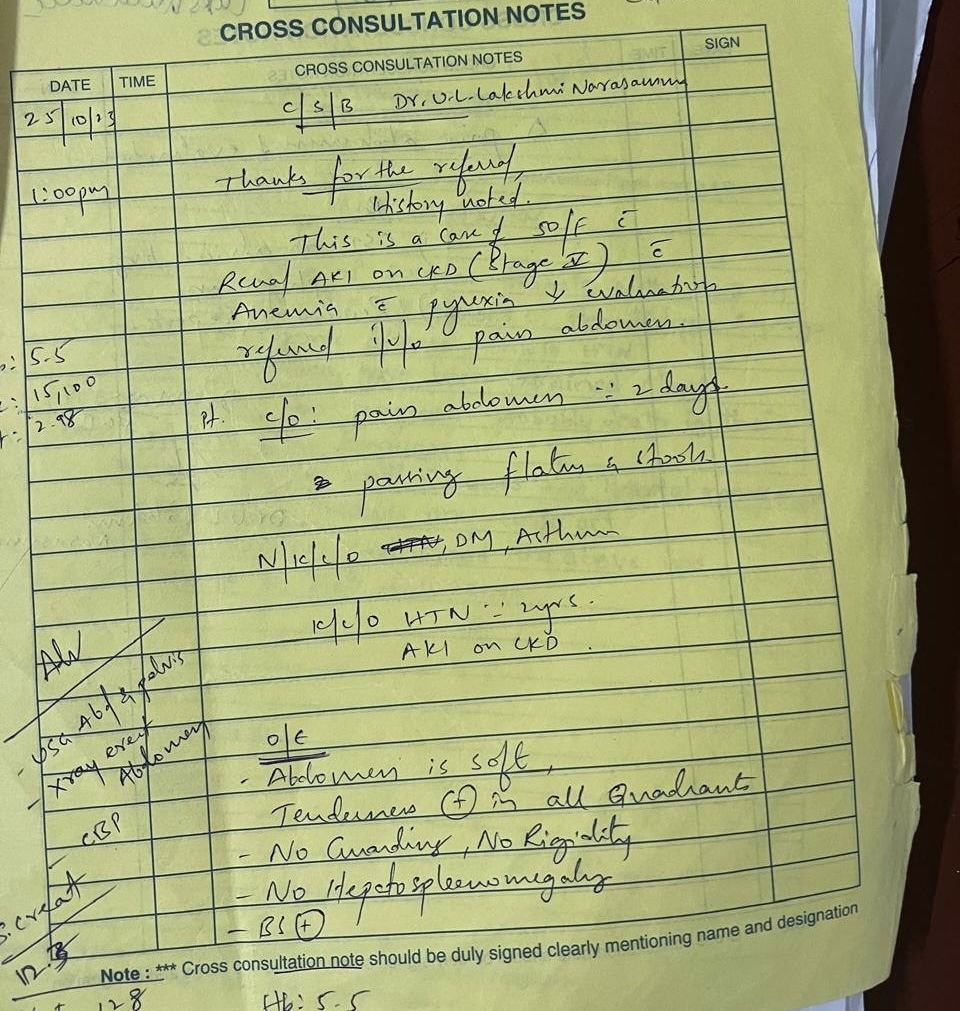 CROSS CONSULTATION NOTES
DATE TIME CROSS CONSULTATION NOTES SIGN
25/10/23 C/S/B Dr. V.L. Lakshmi Narasamma
1:00pm Thanks for the referral,
History noted.
This is a case of 50/F c̄
Renal AKI on CKD (Stage V) c̄
Anemia c̄ pyrexia ↓ evaluation
referred i/v/o pain abdomen.
: 5.5
: 15,100
: 2.98
Pt. c/o: pain abdomen ∵ 2 days.
passing flatus & stools
N/k/c/o HTN, DM, Asthma
k/c/o HTN ∵ 2yrs.
AKI on CKD.
Adv
- USG Abd & pelvis
- Xray erect Abdomen
- CBP
S. creat
O/E
- Abdomen is soft,
Tenderness (+) in all Quadrants
- No Guarding, No Rigidity
- No Hepatospleenomegaly
- BS (+)
Note : *** Cross consultation note should be duly signed clearly mentioning name and designation
128
Hb: 5.5